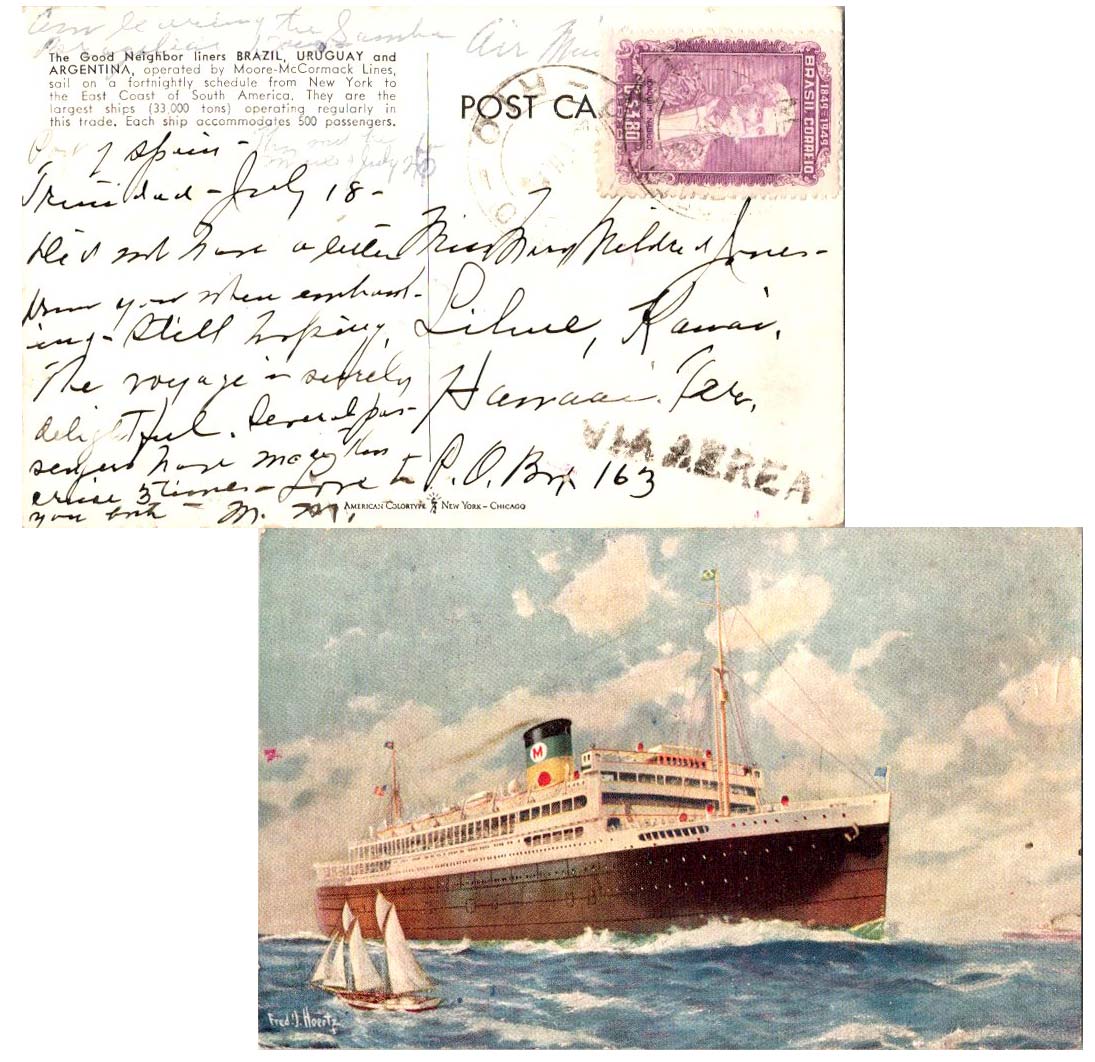 Am learning the Samba
Air Mail
The Good Neighbor liners BRAZIL, URUGUAY and
ARGENTINA, operated by Moore-McCormack Lines,
sail on a fortnightly schedule from New York to
the East Coast of South America. They are the
largest ships (33,000 tons) operating regularly in
this trade. Each ship accommodates 500 passengers.
POST CA
1849-1949
BRASIL CORREIO
JOAQUIM NABUCO
CR$ 3,80
Port of Spain -
Trinidad - July 18 -
Did not have a letter
from you when embark-
ing - Still hoping.
The voyage is surely
delightful. Several pas-
sengers have made this
cruise 3 times - Love to
you both - M. M.
Miss Mary Mildred Jones -
Lihue, Kauai,
Hawaii. Ter.
P.O. Box 163
VIA AEREA
AMERICAN COLORTYPE NEW YORK - CHICAGO
M
Fred J. Hoertz